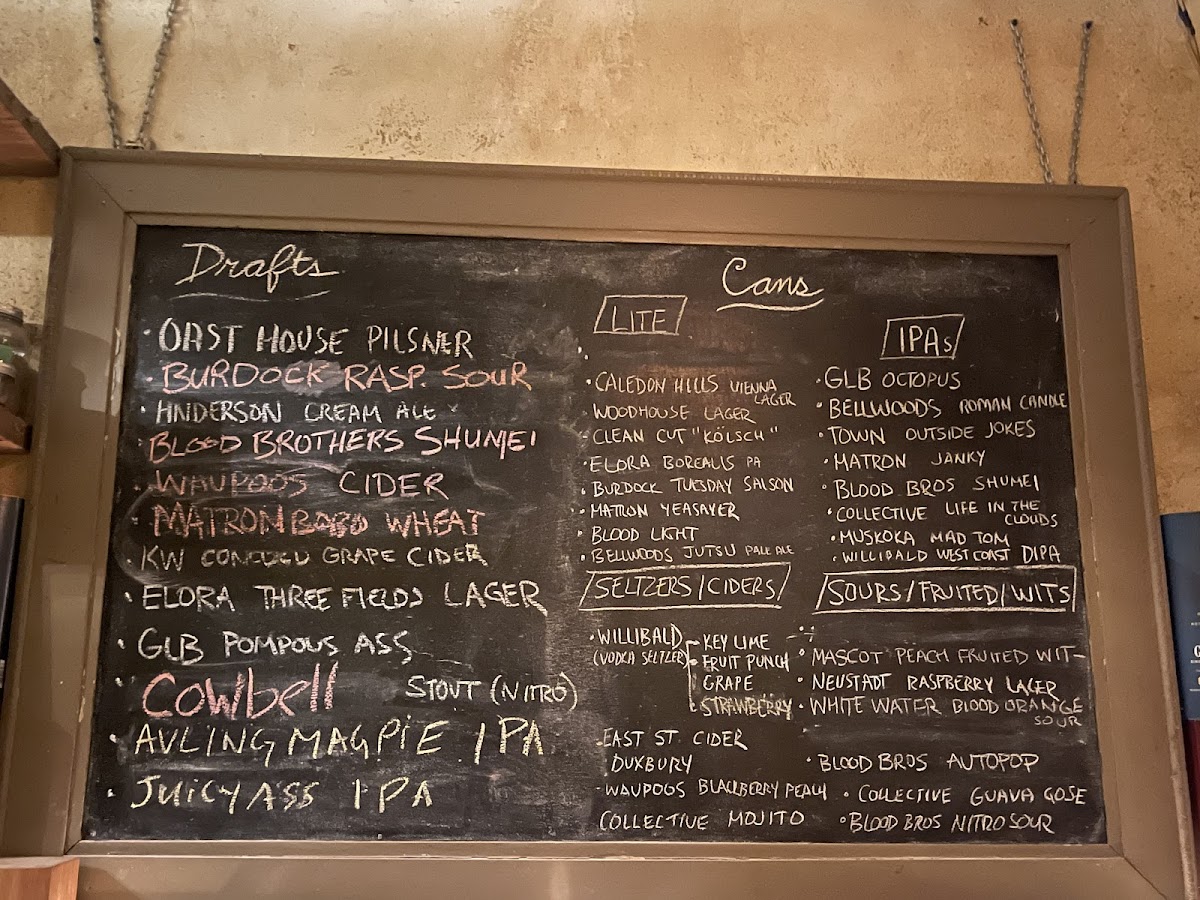 Drafts
· OAST HOUSE PILSNER
· BURDOCK RASP. SOUR
· ANDERSON CREAM ALE
· BLOOD BROTHERS SHUMEI
· WAUPOOS CIDER
· MATRON WHEAT
· KW GRAPE CIDER
· ELORA THREE FIELDS LAGER
· GLB POMPOUS ASS
· COWbell STOUT (NITRO)
· AVLING MAGPIE IPA
· JUICY ASS IPA
Cans
LITE
· CALEDON HILLS VIENNA
LAGER
· WOODHOUSE LAGER
· CLEAN CUT "KÖLSCH"
· ELORA BOREALIS PA
· BURDOCK TUESDAY SAISON
· MATRON YEASAYER
· BLOOD LIGHT
· BELLWOODS JUTSU PALE ALE
SELTZERS/CIDERS
· WILLIBALD
(VODKA SELTZER)
KEY LIME
· FRUIT PUNCH
GRAPE
· STRAWBERRY
· EAST ST. CIDER
· DUXBURY
· WAUPOOS BLACKBERRY PEACH
COLLECTIVE MOJITO
IPAs
· GLB OCTOPUS
· BELLWOODS ROMAN CANDLE
· TOWN OUTSIDE JOKES
· MATRON JANKY
· BLOOD BROS SHUMEI
· COLLECTIVE LIFE IN THE
CLOUDS
· MUSKOKA MAD TOM
· WILLIBALD WEST COAST DIPA
SOURS/FRUITED/WITS
· MASCOT PEACH FRUITED WIT
· NEUSTADT RASPBERRY LAGER
· WHITE WATER BLOOD ORANGE
SOUR
· BLOOD BROS AUTOPOP
· COLLECTIVE GUAVA GOSE
· BLOOD BROS NITRO SOUR